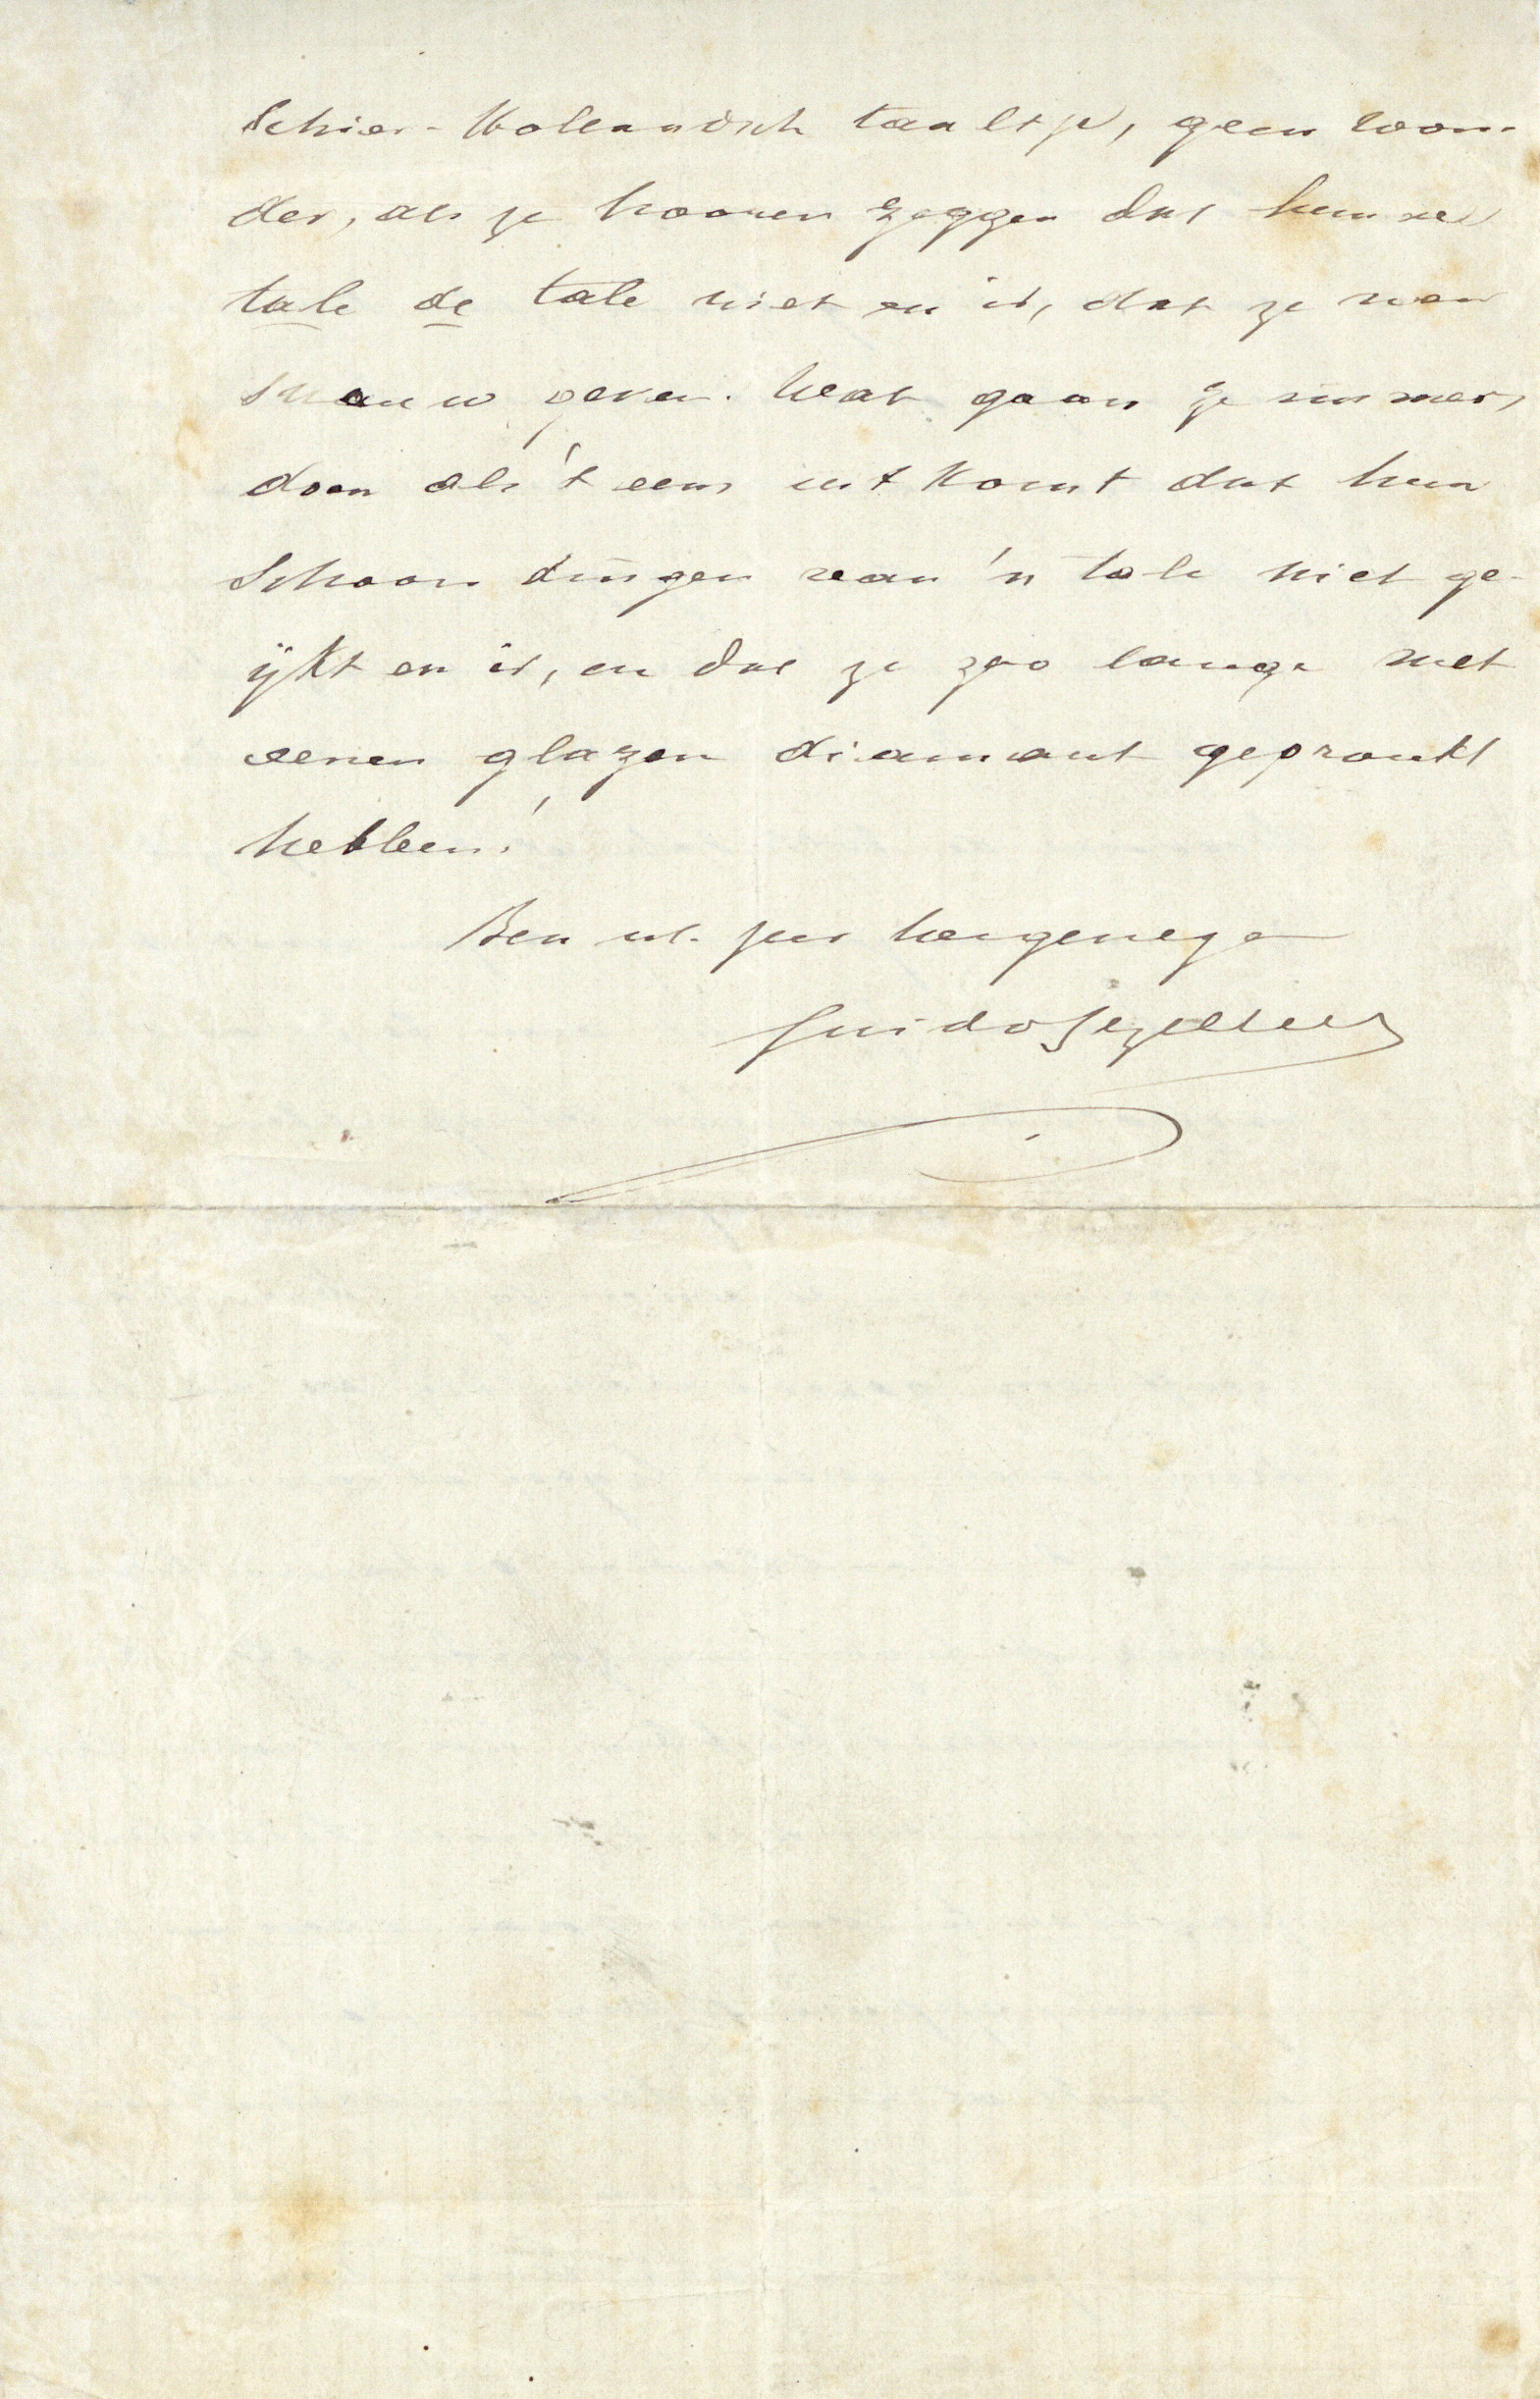 Schier-Hollandsch taaltje, geen won-
der, als ze hooren zeggen dat hunne
tale de tale niet en is, dat ze nen
snauw geven. Wat gaan ze immers
doen als 't eens uitkomt dat hun
schoon dingen van 'n tale niet ge-
ijkt en is, en dat ze zoo lange met
eenen glazen diamant gepronkt
hebben!
Ben ul. zeer toegenegen
Guido Gezelle